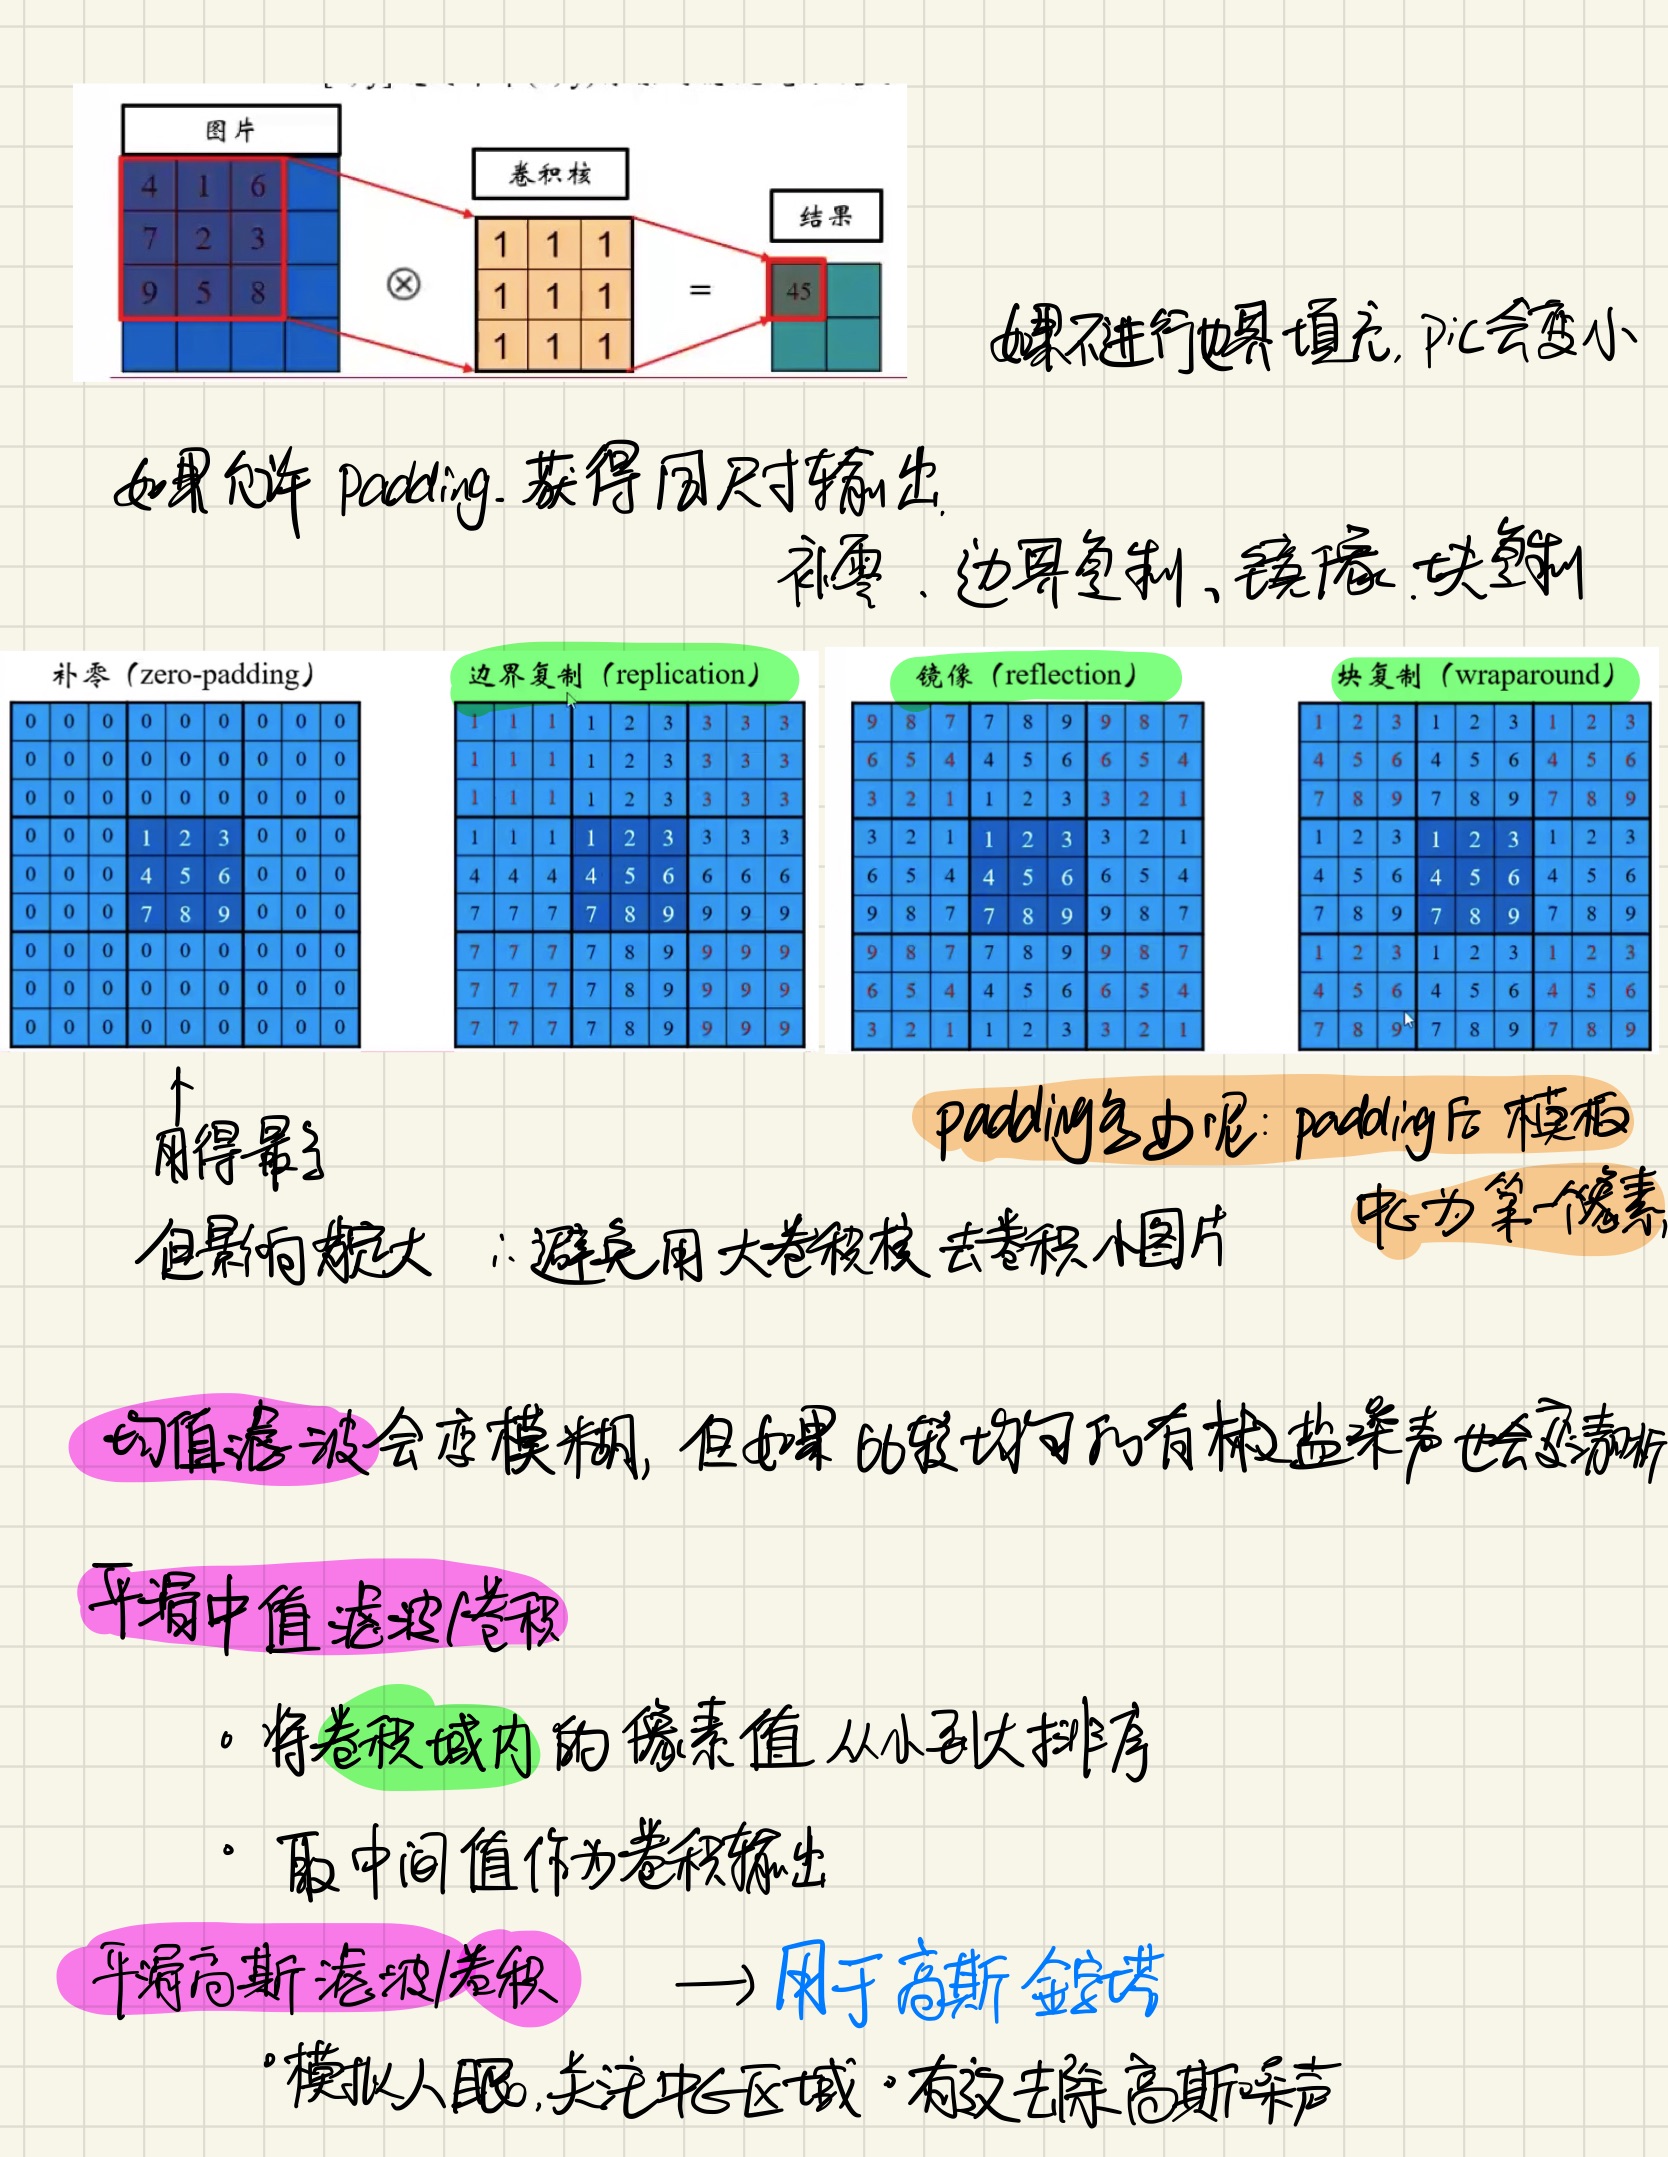 图片
卷积核
结果
4 1 6
7 2 3
9 5 8
⊗
1 1 1
1 1 1
1 1 1
=
45
如果不进行边界填充, pic会变小
如果允许 padding. 获得同尺寸输出.
补零、边界复制、镜像、块复制
补零（zero-padding）
0 0 0 0 0 0 0 0 0
0 0 0 0 0 0 0 0 0
0 0 0 0 0 0 0 0 0
0 0 0 1 2 3 0 0 0
0 0 0 4 5 6 0 0 0
0 0 0 7 8 9 0 0 0
0 0 0 0 0 0 0 0 0
0 0 0 0 0 0 0 0 0
0 0 0 0 0 0 0 0 0
边界复制（replication）
1 1 1 1 2 3 3 3 3
1 1 1 1 2 3 3 3 3
1 1 1 1 2 3 3 3 3
1 1 1 1 2 3 3 3 3
4 4 4 4 5 6 6 6 6
7 7 7 7 8 9 9 9 9
7 7 7 7 8 9 9 9 9
7 7 7 7 8 9 9 9 9
7 7 7 7 8 9 9 9 9
镜像（reflection）
9 8 7 7 8 9 9 8 7
6 5 4 4 5 6 6 5 4
3 2 1 1 2 3 3 2 1
3 2 1 1 2 3 3 2 1
6 5 4 4 5 6 6 5 4
9 8 7 7 8 9 9 8 7
9 8 7 7 8 9 9 8 7
6 5 4 4 5 6 6 5 4
3 2 1 1 2 3 3 2 1
块复制（wraparound）
1 2 3 1 2 3 1 2 3
4 5 6 4 5 6 4 5 6
7 8 9 7 8 9 7 8 9
1 2 3 1 2 3 1 2 3
4 5 6 4 5 6 4 5 6
7 8 9 7 8 9 7 8 9
1 2 3 1 2 3 1 2 3
4 5 6 4 5 6 4 5 6
7 8 9 7 8 9 7 8 9
↑
用得最多
padding多少呢: padding后 模板
中心为第一个像素
但影响稳定大 ∴避免用大卷积核去卷积小图片
均值滤波会变模糊, 但如果比较均匀的有椒盐噪声也会变清晰
平滑中值滤波/卷积
• 将卷积域内的像素值从小到大排序
• 取中间值作为卷积输出
平滑高斯滤波/卷积 → 用于高斯金字塔
• 模拟人眼,关注中心区域 • 有效去除高斯噪声